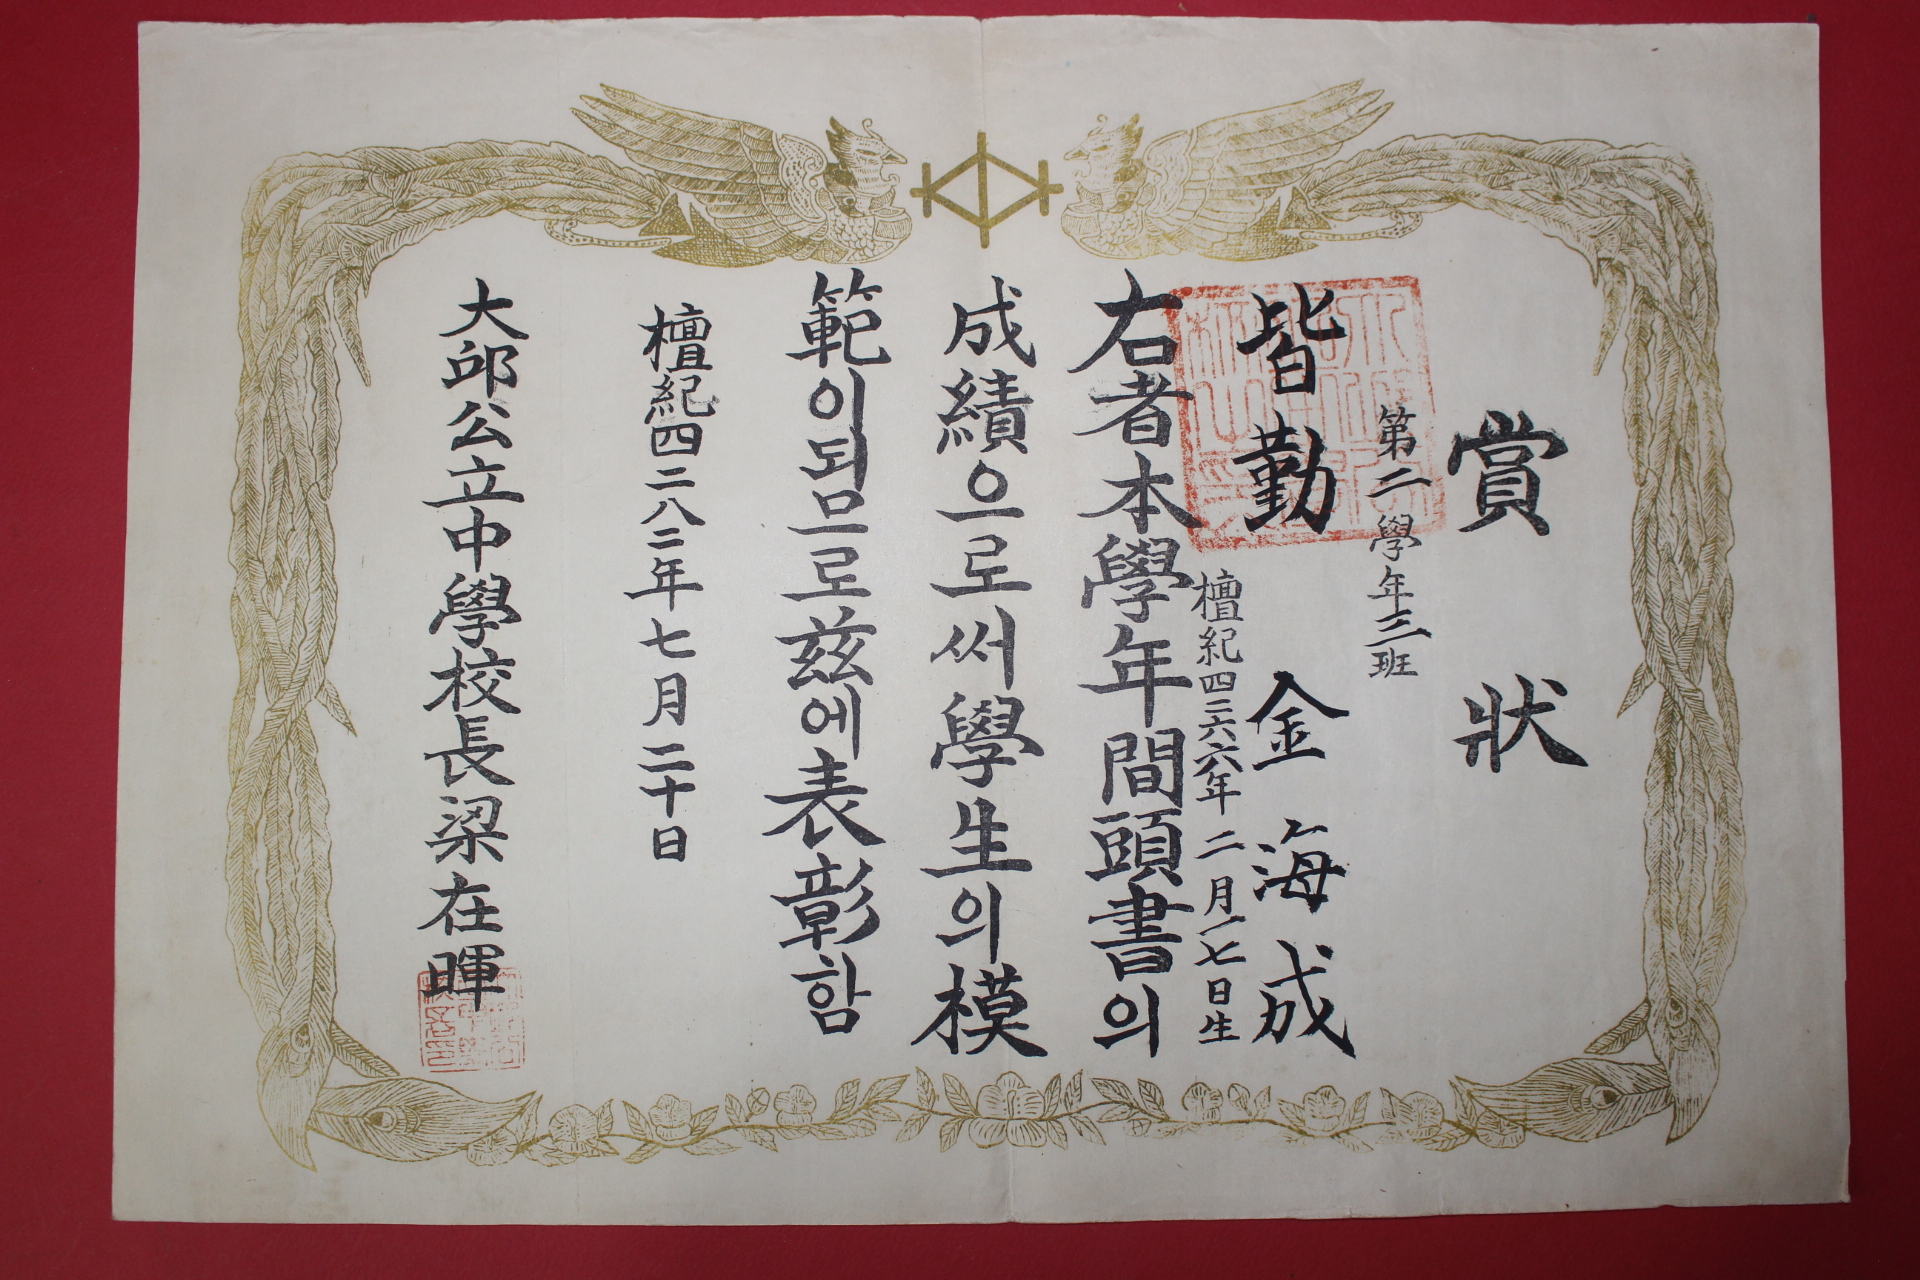 賞狀
第二學年三班
皆勤 金海成
檀紀四二六六年二月十七日生
右者本學年間頭書의
成績으로써學生의模
範이되므로玆에表彰함
檀紀四二八二年七月二十日
大邱公立中學校長梁在暉